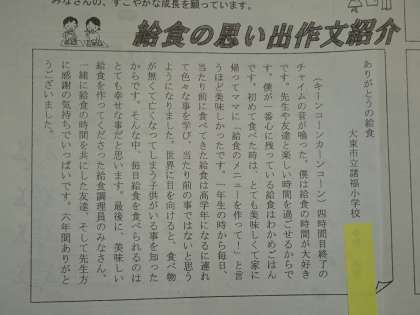 みなさんの、すこやかな成長を願っています。
給食の思い出作文紹介
ありがとうの給食
大東市立諸福小学校
(キーンコーンカーンコーン)四時間目終了の
チャイムの音が鳴った。僕は給食の時間が大好き
です。先生や友達と楽しい時間を過ごせるからで
す。僕が一番心に残っている給食はわかめごはん
です。初めて食べた時は、とても美味しくて家に
帰ってママに「給食のメニューを作って!」と言
うほど美味しかったです。一年生の時から毎日、
当たり前に食べてきた給食は高学年になるに連れ
て色々な事を学び、当たり前の事ではないと思う
ようになりました。世界に目を向けると、食べ物
が無くて亡くなってしまう子供がいる事を知った
からです。そんな中、毎日給食を食べられるのは
とても幸せな事だと思います。最後に、美味しい
給食を作ってくださった給食調理員のみなさん、
一緒に給食の時間を共にした友達、そして先生方
に感謝の気持ちでいっぱいです。六年間ありがと
うございました。